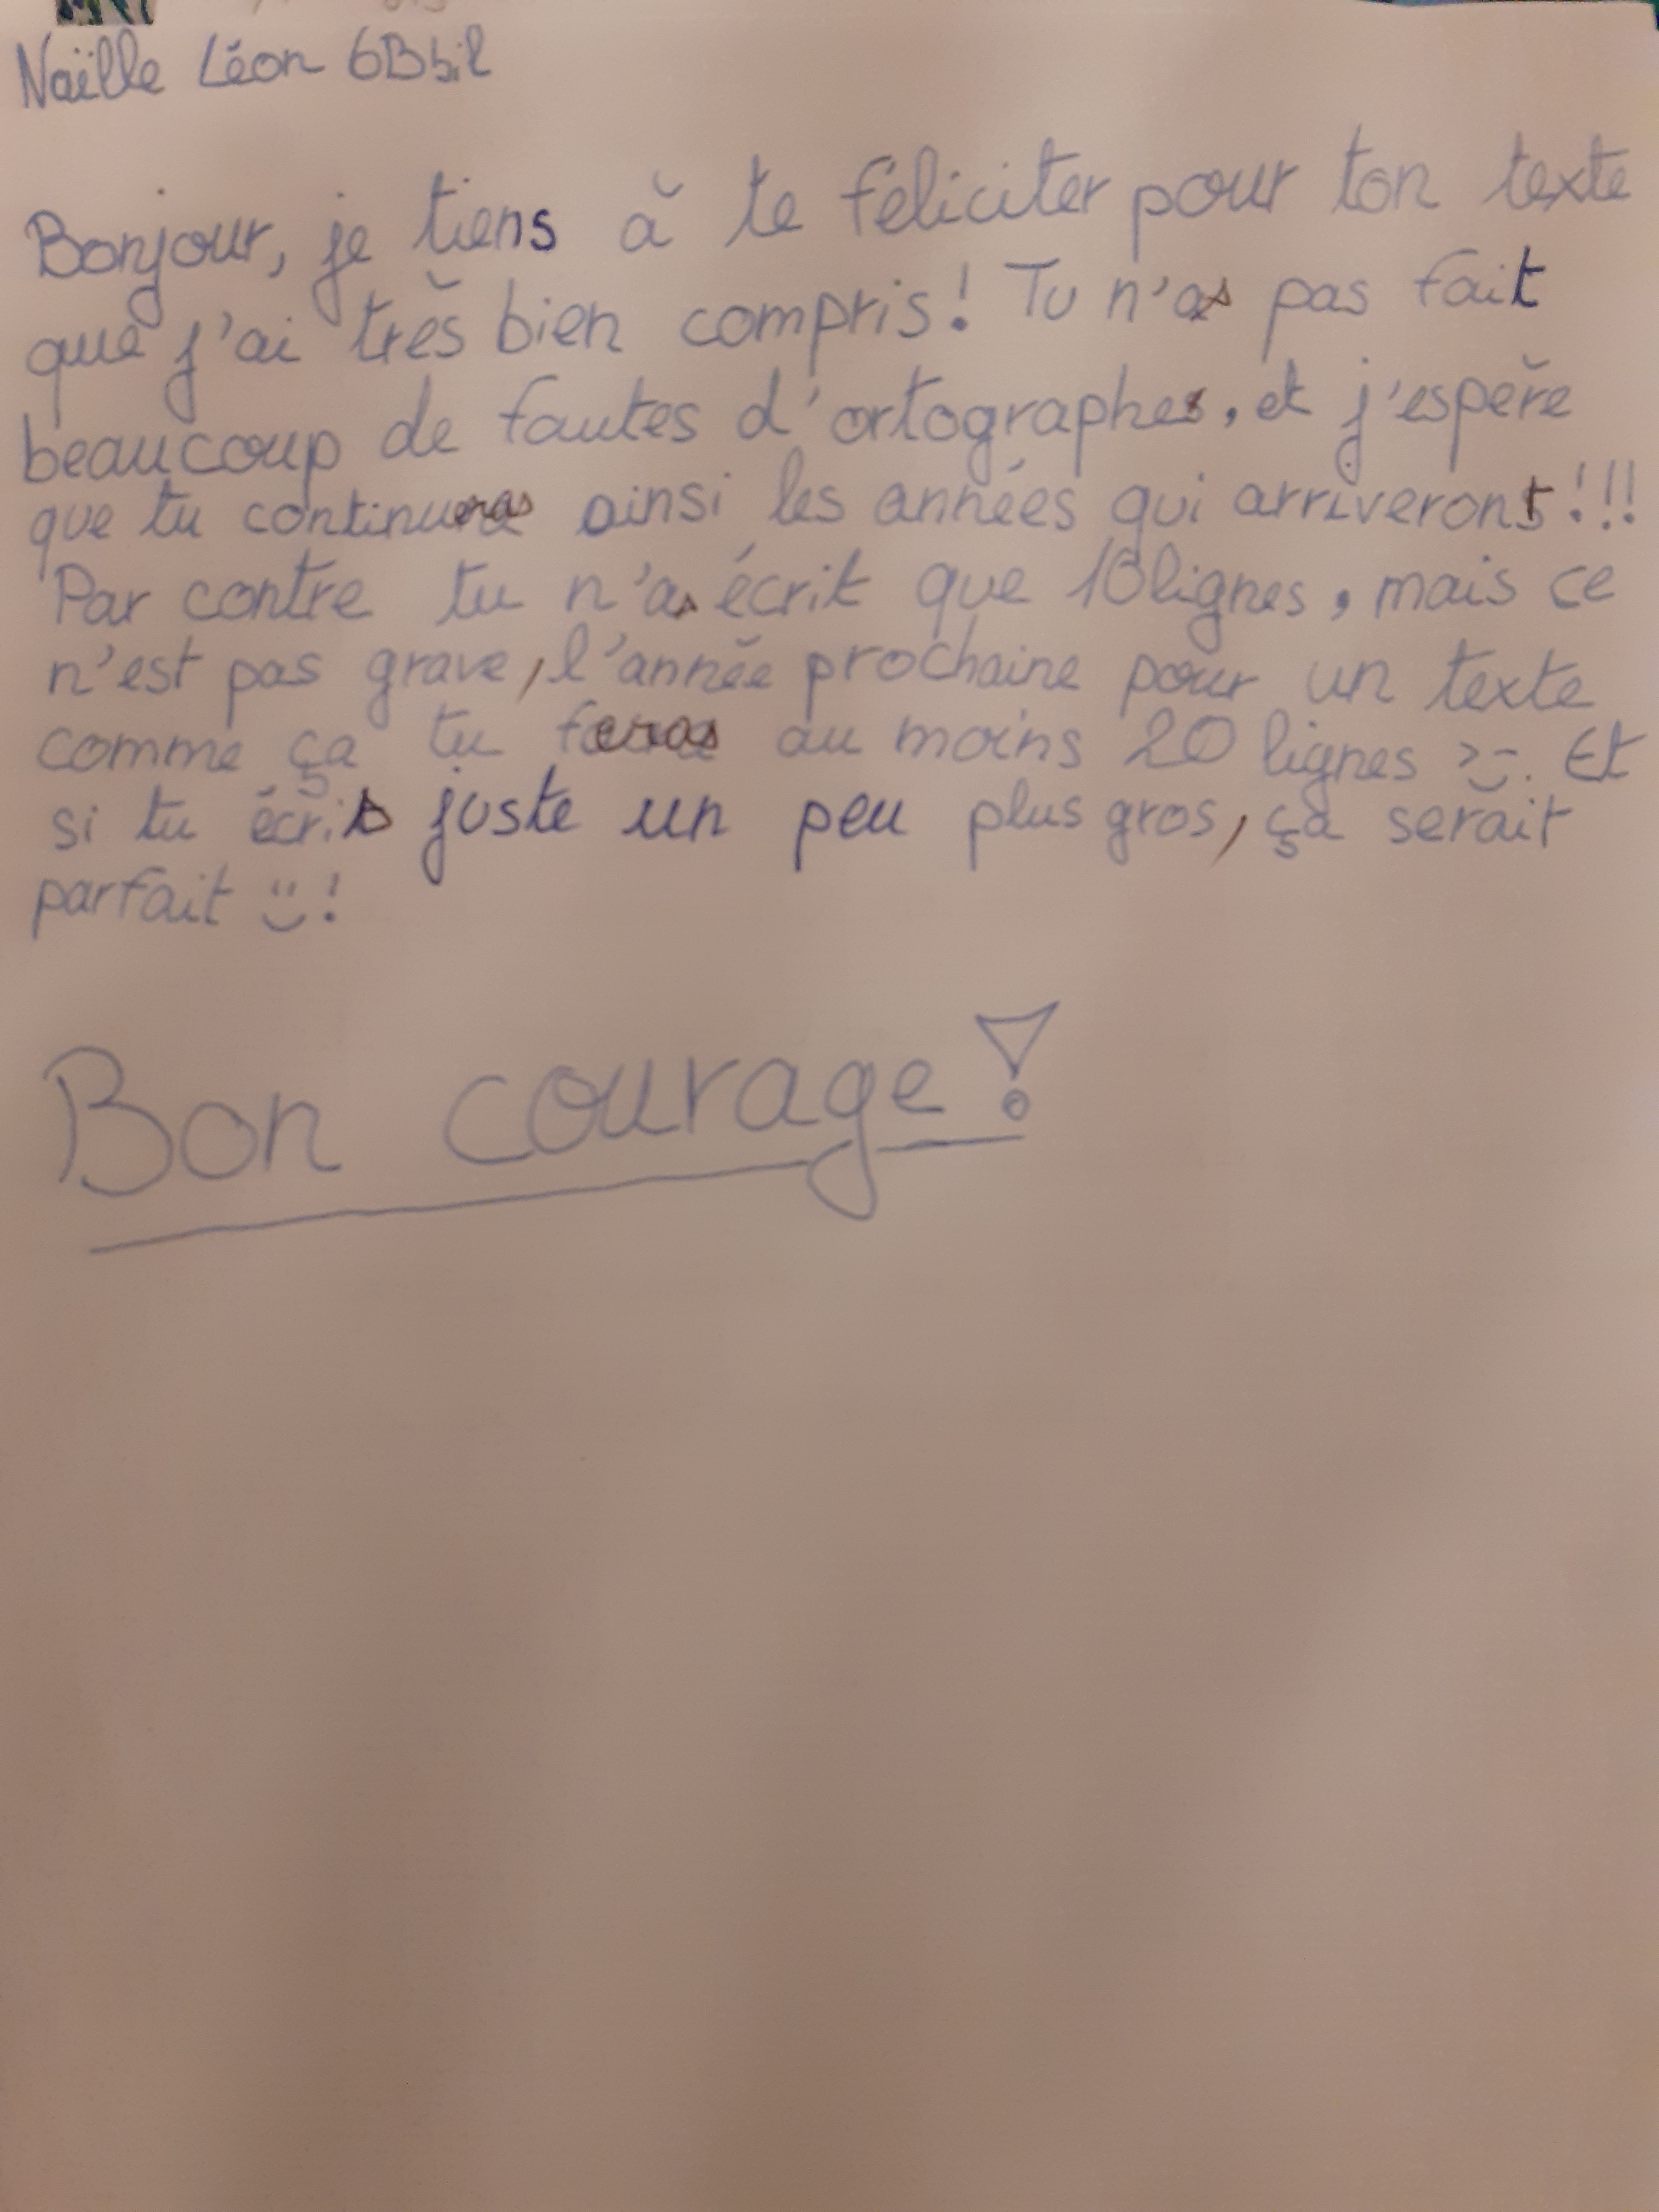 Naïlle Léon 6B bil
Bonjour, je tiens à te féliciter pour ton texte
que j'ai très bien compris! Tu n'as pas fait
beaucoup de fautes d'ortographes, et j'espère
que tu continueras ainsi les années qui arriveront!!!
Par contre tu n'as écrit que lignes, mais ce
n'est pas grave, l'année prochaine pour un texte
comme ça tu feras au moins 20 lignes >:-). Et
si tu écris juste un peu plus gros, ça serait
parfait :)!
Bon courage!